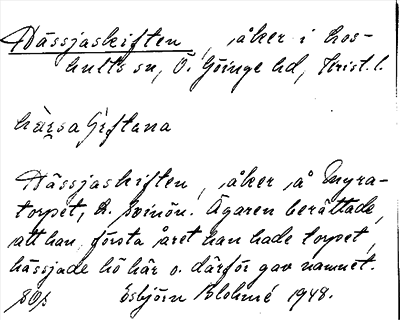 Hässjaskiften, åker i Los-
hults sn, Ö. Göinge hd, Krist. l.
hä̀ṣa
Hässjaskiften, åker å Myra-
torpet, Svinön. Ägaren berättade,
att han första året han hade torpet,
hässjade hö här o. därför gav namnet.
Esbjörn Blohmé 1948.